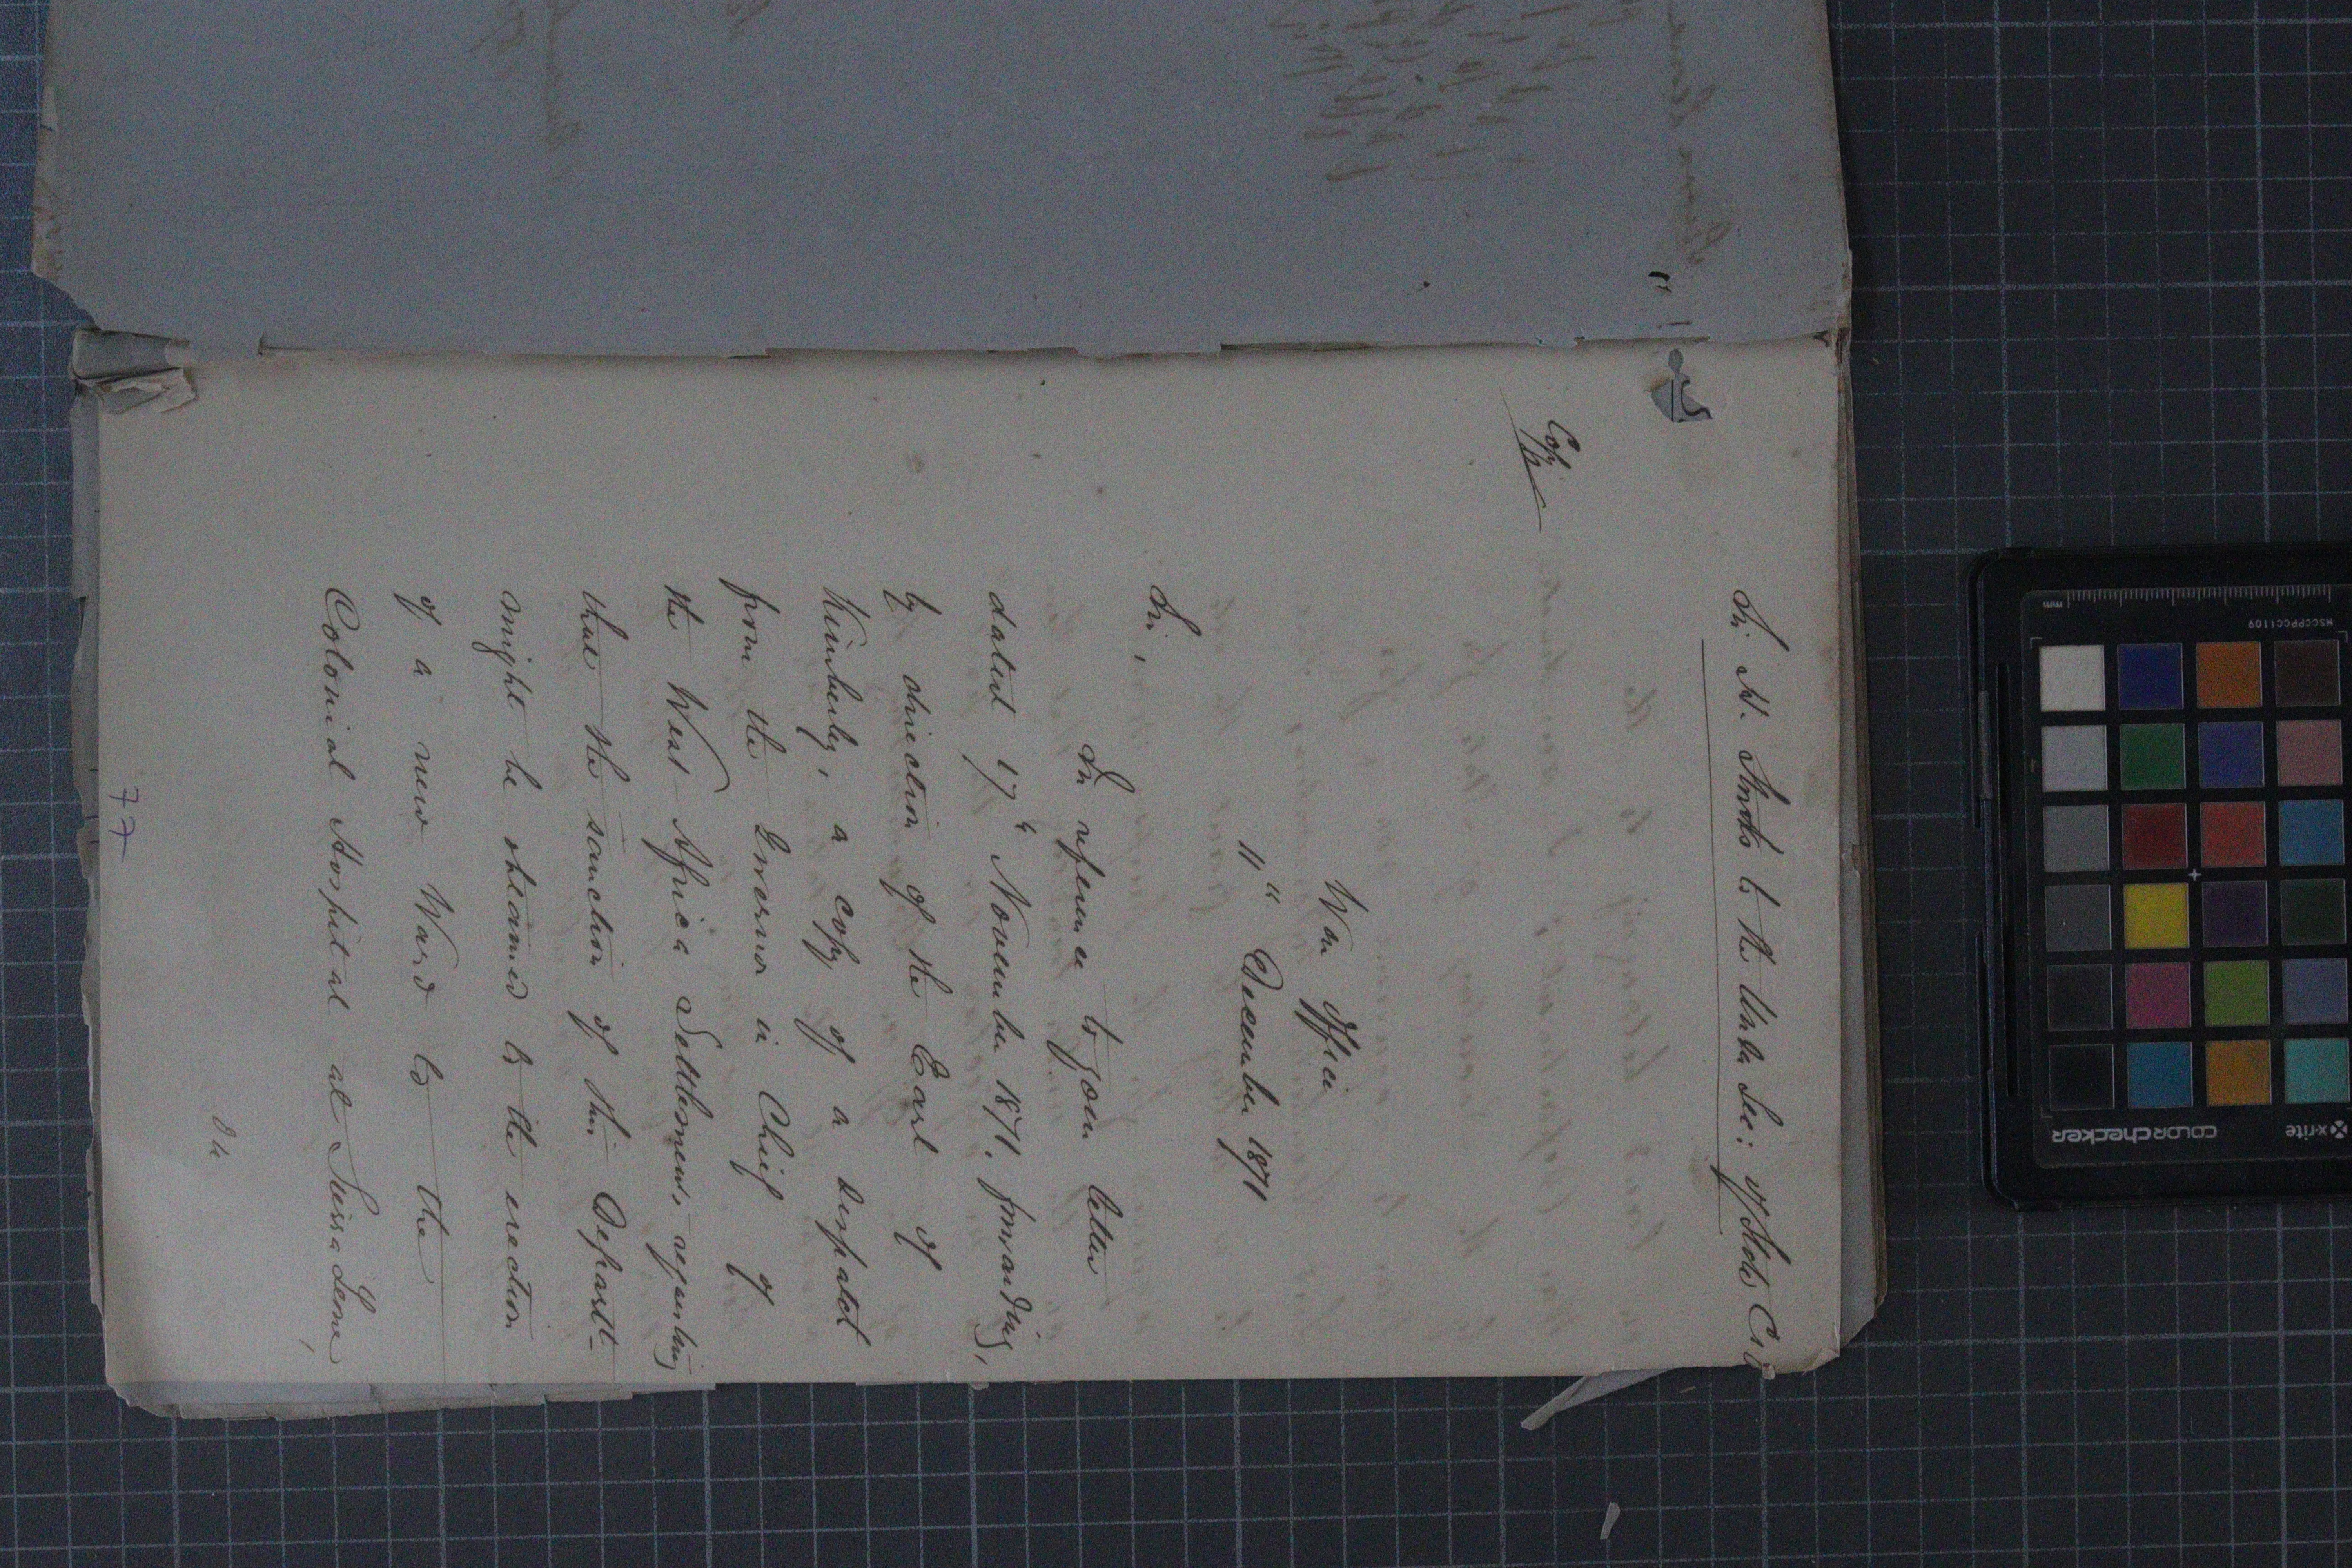 Sir H. Storks to the Under Sec: of State C.O
Copy
War Office
11th December 1871
Sir,
In reference to your letter
dated 17th November 1871. forwarding,
by direction of the Earl of
Kimberley, a copy of a Despatch
from the Governor in Chief of
the West Africa Settlements, requesting
that the sanction of this Departt-
might be obtained to the erection
of a new Ward to the
Colonial Hospital at Sierra Leone,
77
mm
MSCCPPCC1109
x-rite
COLORchecker